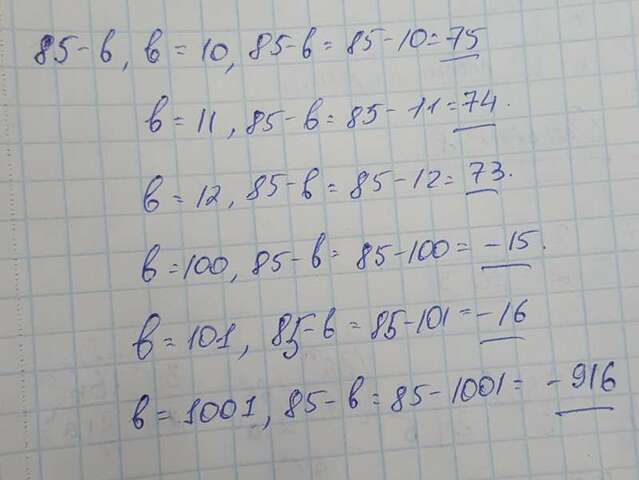 85-в, в = 10, 85-в = 85-10=75
в = 11, 85-в = 85-11=74.
в = 12, 85-в = 85-12= 73.
в =100, 85-в = 85-100= -15.
в = 101, 85-в = 85-101=-16
в = 1001, 85-в = 85-1001= -916